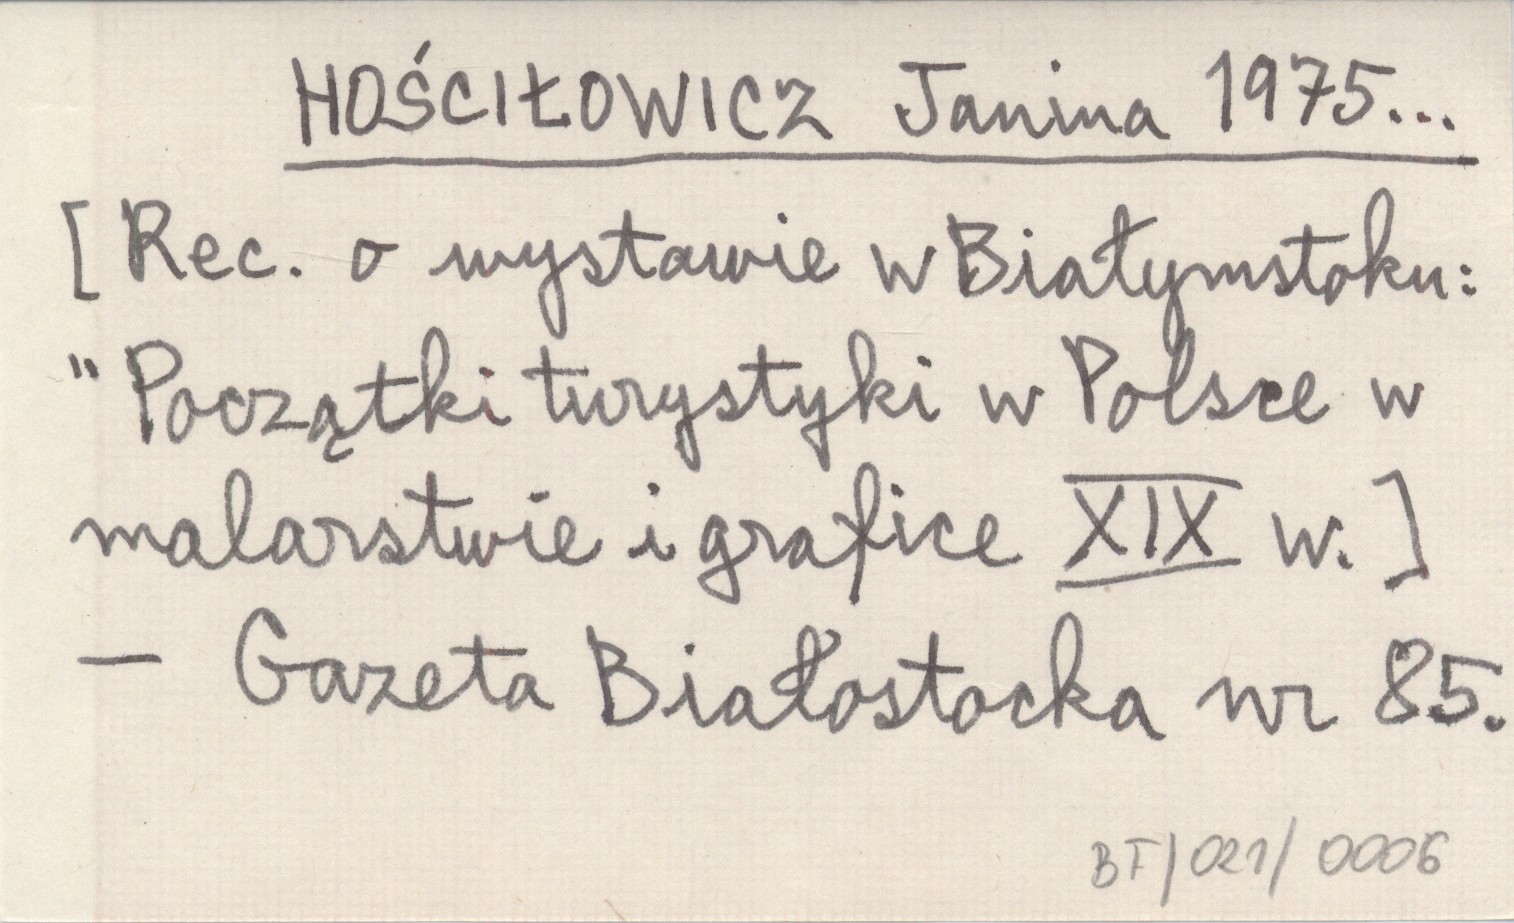 HOŚCIŁOWICZ Janina 1975...
[Rec. o wystawie w Białymstoku:
"Początki turystyki w Polsce w
malarstwie i grafice XIX w.]
— Gazeta Białostocka nr 85.
BT/021/0006